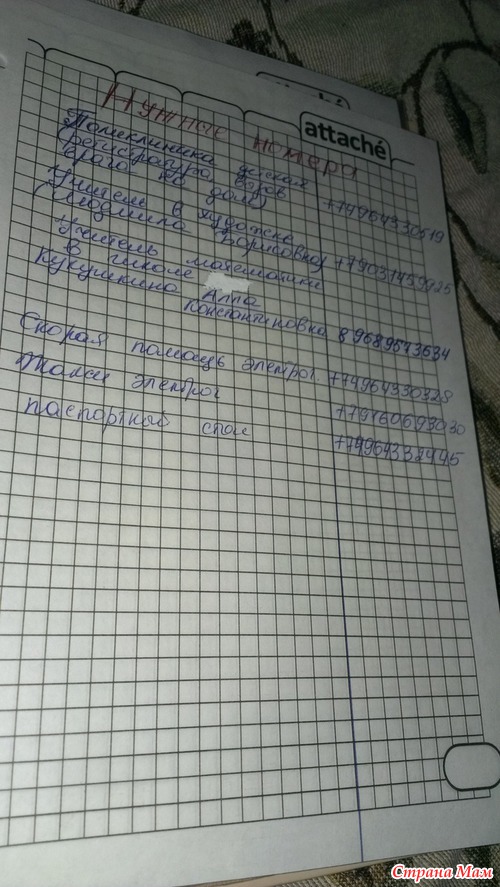 attaché
Нужные номера
Поликлиника детская
(регистратура, вызов
врача на дом) +74964330519
Учитель в художке
(Людмила Борисовна) +79031459925
Учитель математики
в школе
Кукушкина Алла
Константиновна 89689573634
Скорая помощь электрог. +74964330328
Такси электрог +79160693030
паспортный стол
Страна Мам